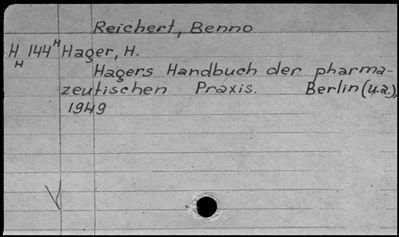 Reichert, Benno
H 144 H Hager, H.
H
Hagers Handbuch der pharma-
zeutischen Praxis. Berlin (u.a.),
1949